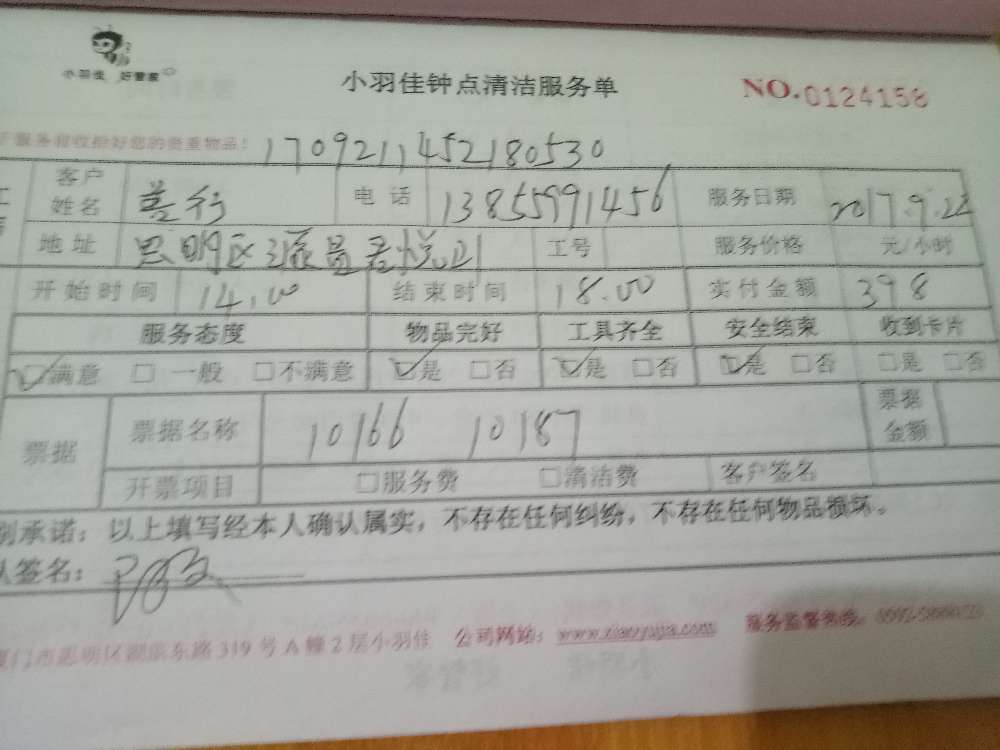 小羽佳 好管家
小羽佳钟点清洁服务单
NO.0124158
服务前收拾好您的贵重物品!
1709211452180530
客户姓名 电话 13855991456 服务日期 2017.9.22
地址 思明区 工号 服务价格 元/小时
开始时间 14.00 结束时间 18.00 实付金额 398
服务态度 物品完好 工具齐全 安全结束 收到卡片
☑满意 □一般 □不满意 ☑是 □否 ☑是 □否 ☑是 □否 □是 □否
票据 票据名称 10166 10187 票据金额
开票项目 □服务费 □清洁费 客户签名
别承诺:以上填写经本人确认属实,不存在任何纠纷,不存在任何物品损坏。
签名:
厦门市思明区湖滨东路319号A幢2层小羽佳 公司网站:www.xiaoyujia.com 服务监督热线: